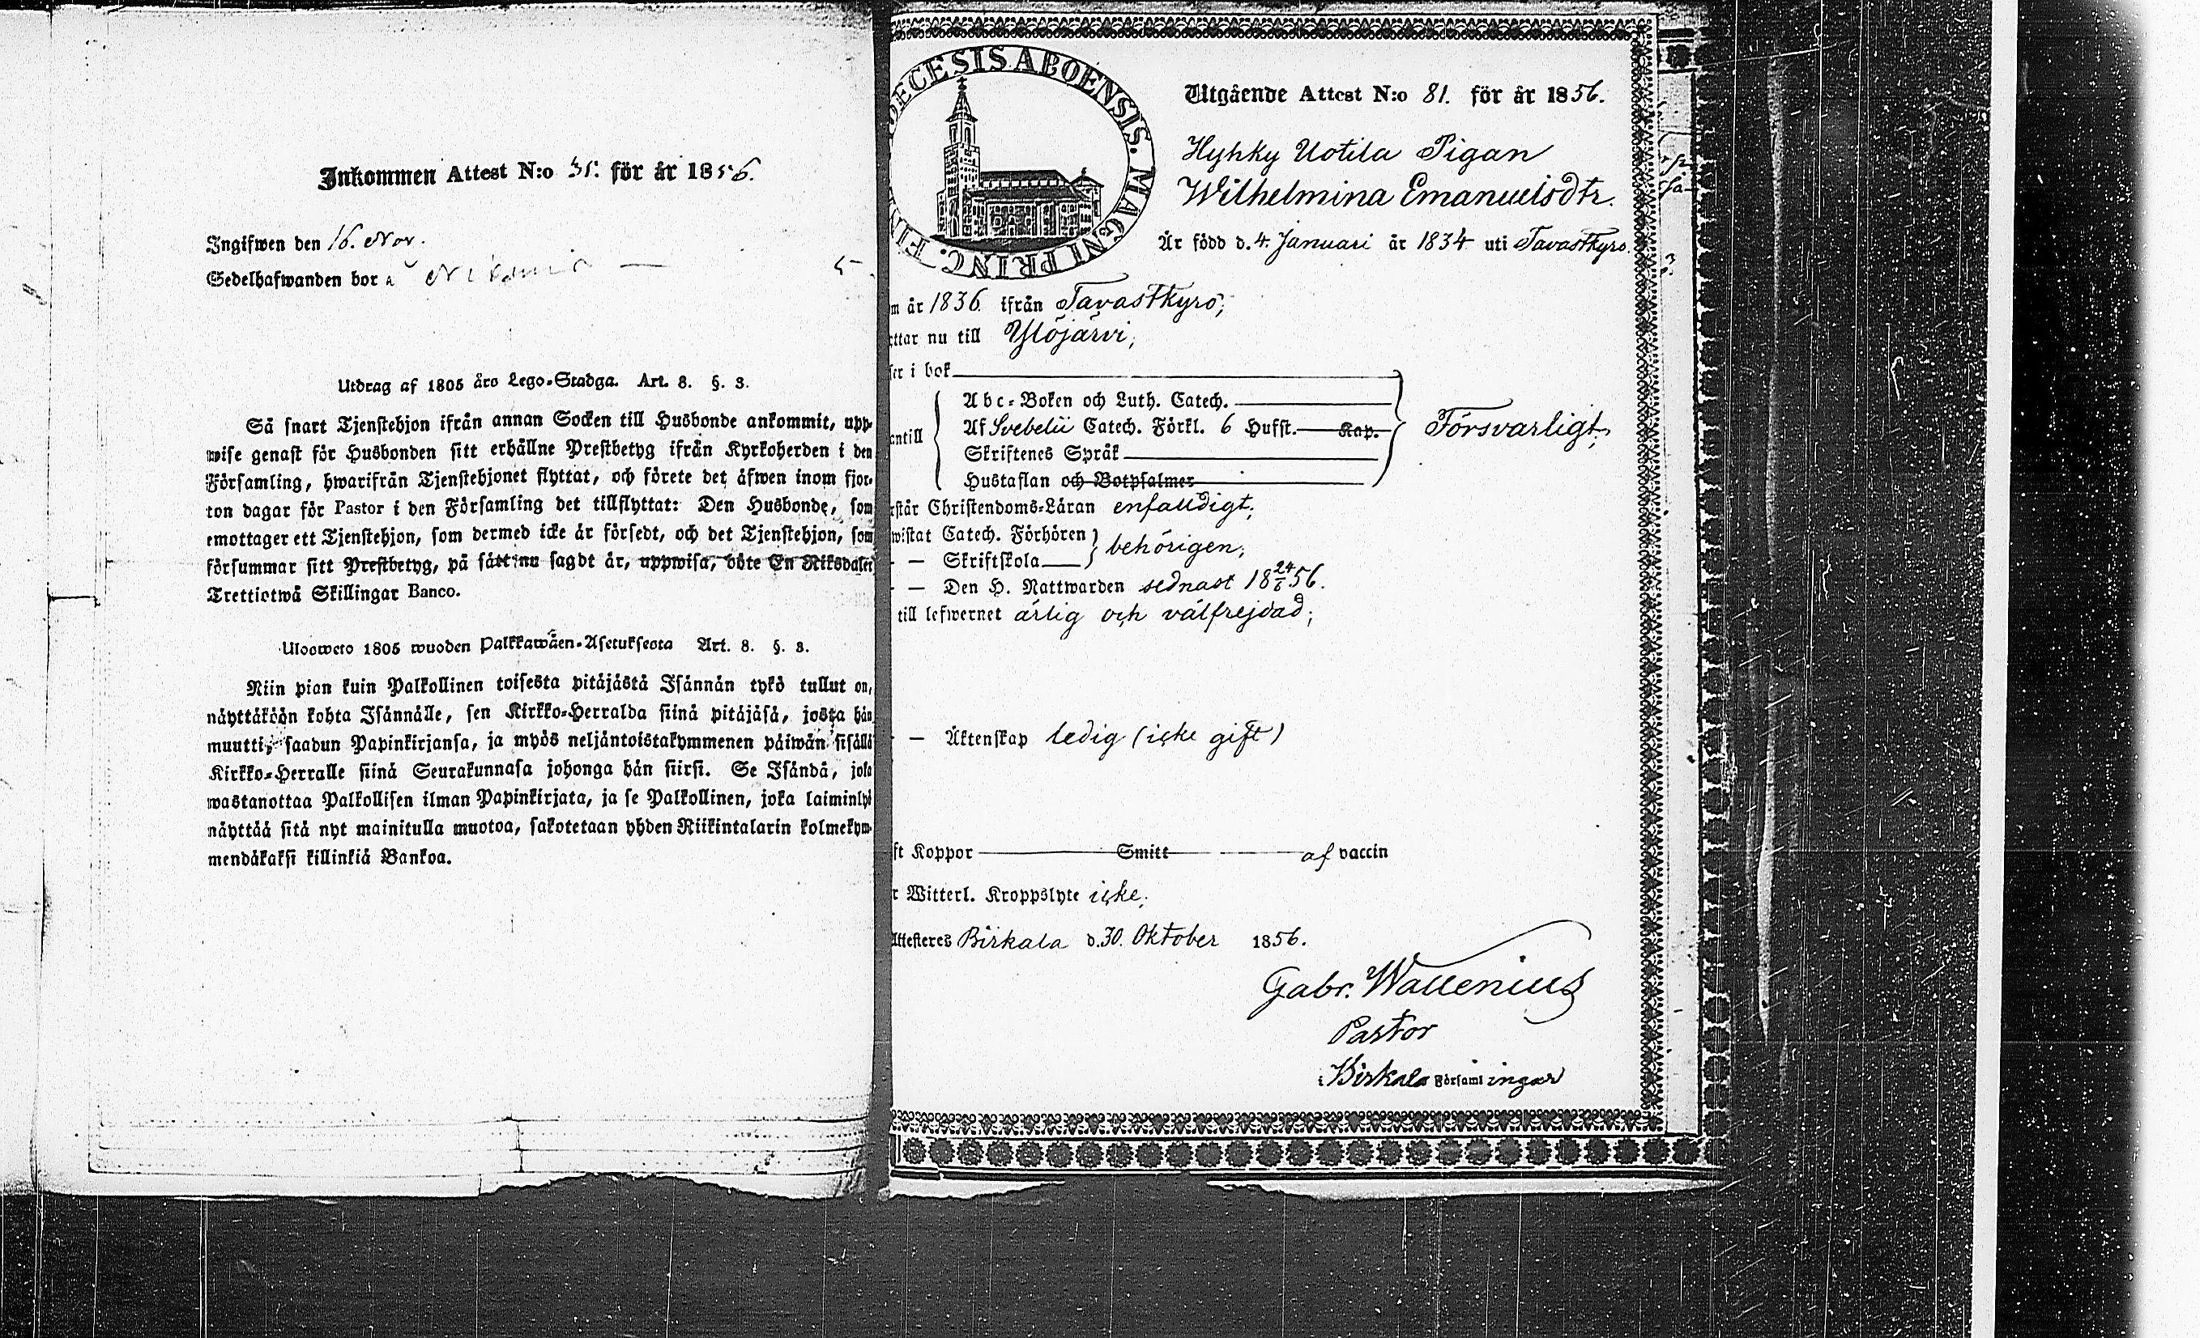 Inkommen Attest N:o 35. för år 1856.
Ingifwen den 16. Nov.
Sedelhafwanden bor å
Utdrag af 1805 års Lego-Stadga. Art. 8. §. 3.
Så snart Tjenstehjon ifrån annan Socken till Husbonde ankommit, upp-
wise genast för Husbonden sitt erhållne Prestbetyg ifrån Kyrkoherden i den
Församling, hwarifrån Tjenstehjonet flyttat, och förete det äfwen inom fjor-
ton dagar för Pastor i den Församling det tillflyttat: Den Husbonde, som
emottager ett Tjenstehjon, som dermed icke är försedt, och det Tjenstehjon, som
försummar sitt Prestbetyg, på sätt nu sagdt är, uppwisa, böte En Riksdaler
Trettiotwå Skillingar Banco.
Ulosweto 1805 wuoden Palkkawäen-Asetuksesta Art. 8. §. 3.
Niin pian kuin Palkollinen toisesta pitäjästä Isännän tykö tullut on,
näyttäköön kohta Isännälle, sen Kirkko-Herralda siinä pitäjäsä, josta hän
muutti, saadun Papinkirjansa, ja myös neljäntoistakymmenen päiwän sisällä
Kirkko-Herralle siinä Seurakunnasa johonga hän siirsi. Se Isändä, joka
wastanottaa Palkollisen ilman Papinkirjata, ja se Palkollinen, joka laiminlyö
näyttää sitä nyt mainitulla muotoa, sakotetaan yhden Riikintalarin kolmekym-
mendäkaksi killinkiä Bankoa.
DECESIS ABOENSIS. MAGNI PRINC. FIN
Utgående Attest N:o 81. för år 1856.
Hyhky Uotila Pigan
Wilhelmina Emanuelsdtr.
Är född d. 4. Januari år 1834 uti Tavastkyro.
m år 1836. ifrån Tavastkyro;
ttar nu till Ylöjärvi;
ser i bok
Abc-Boken och Luth. Catech.
antill Af Svebelii Catech. Förkl. 6 Hufst. Kap. Försvarligt;
Skriftenes Språk
Hustaflan och Botpsalmer
rstår Christendoms-Läran enfalldigt;
wistat Catech. Förhören behörigen;
— Skriftskola
— Den H. Nattwarden sednast 18 24/6 56.
till lefwernet ärlig och välfrejdad;
— Äktenskap ledig (icke gift)
ft Koppor Smitt af vaccin
r Witterl. Kroppslyte icke;
Attesteres Birkala d. 30. Oktober 1856.
Gabr. Wallenius
Pastor
i Birkala Församl ingar